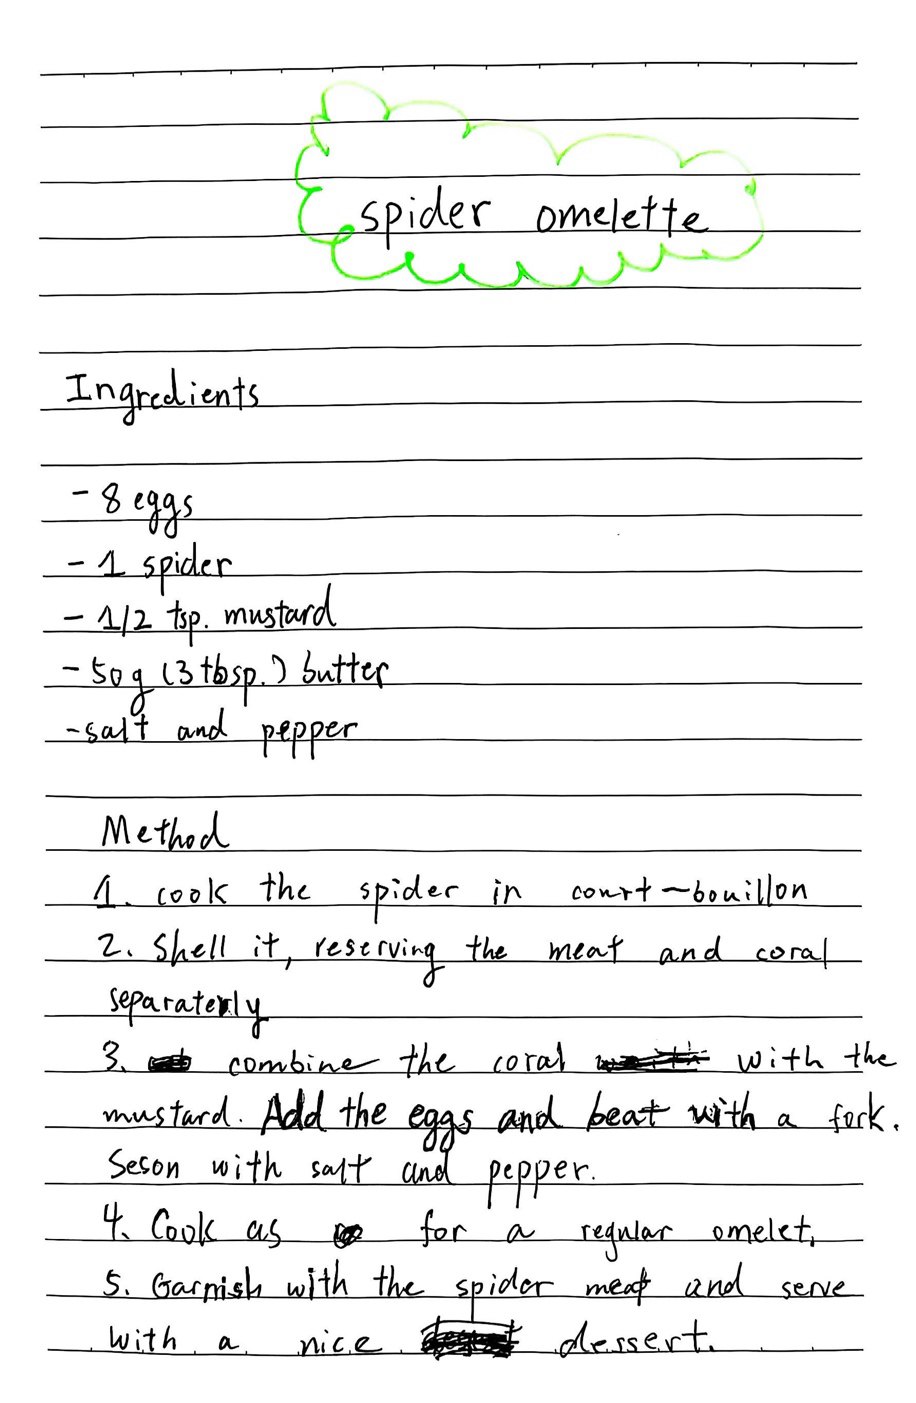 spider omelette
Ingredients
- 8 eggs
- 1 spider
- 1/2 tsp. mustard
- 50g (3 tbsp.) butter
- salt and pepper
Method
1. cook the spider in court-bouillon
2. Shell it, reserving the meat and coral
separaterly
3. combine the coral with the
mustard. Add the eggs and beat with a fork.
Seson with salt and pepper.
4. Cook as for a regular omelet.
5. Garnish with the spider meat and serve
with a nice dessert.